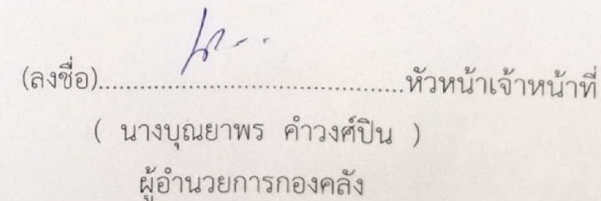 (ลงชื่อ)......................................หัวหน้าเจ้าหน้าที่
( นางบุณยาพร คำวงศ์ปิน )
ผู้อำนวยการกองคลัง